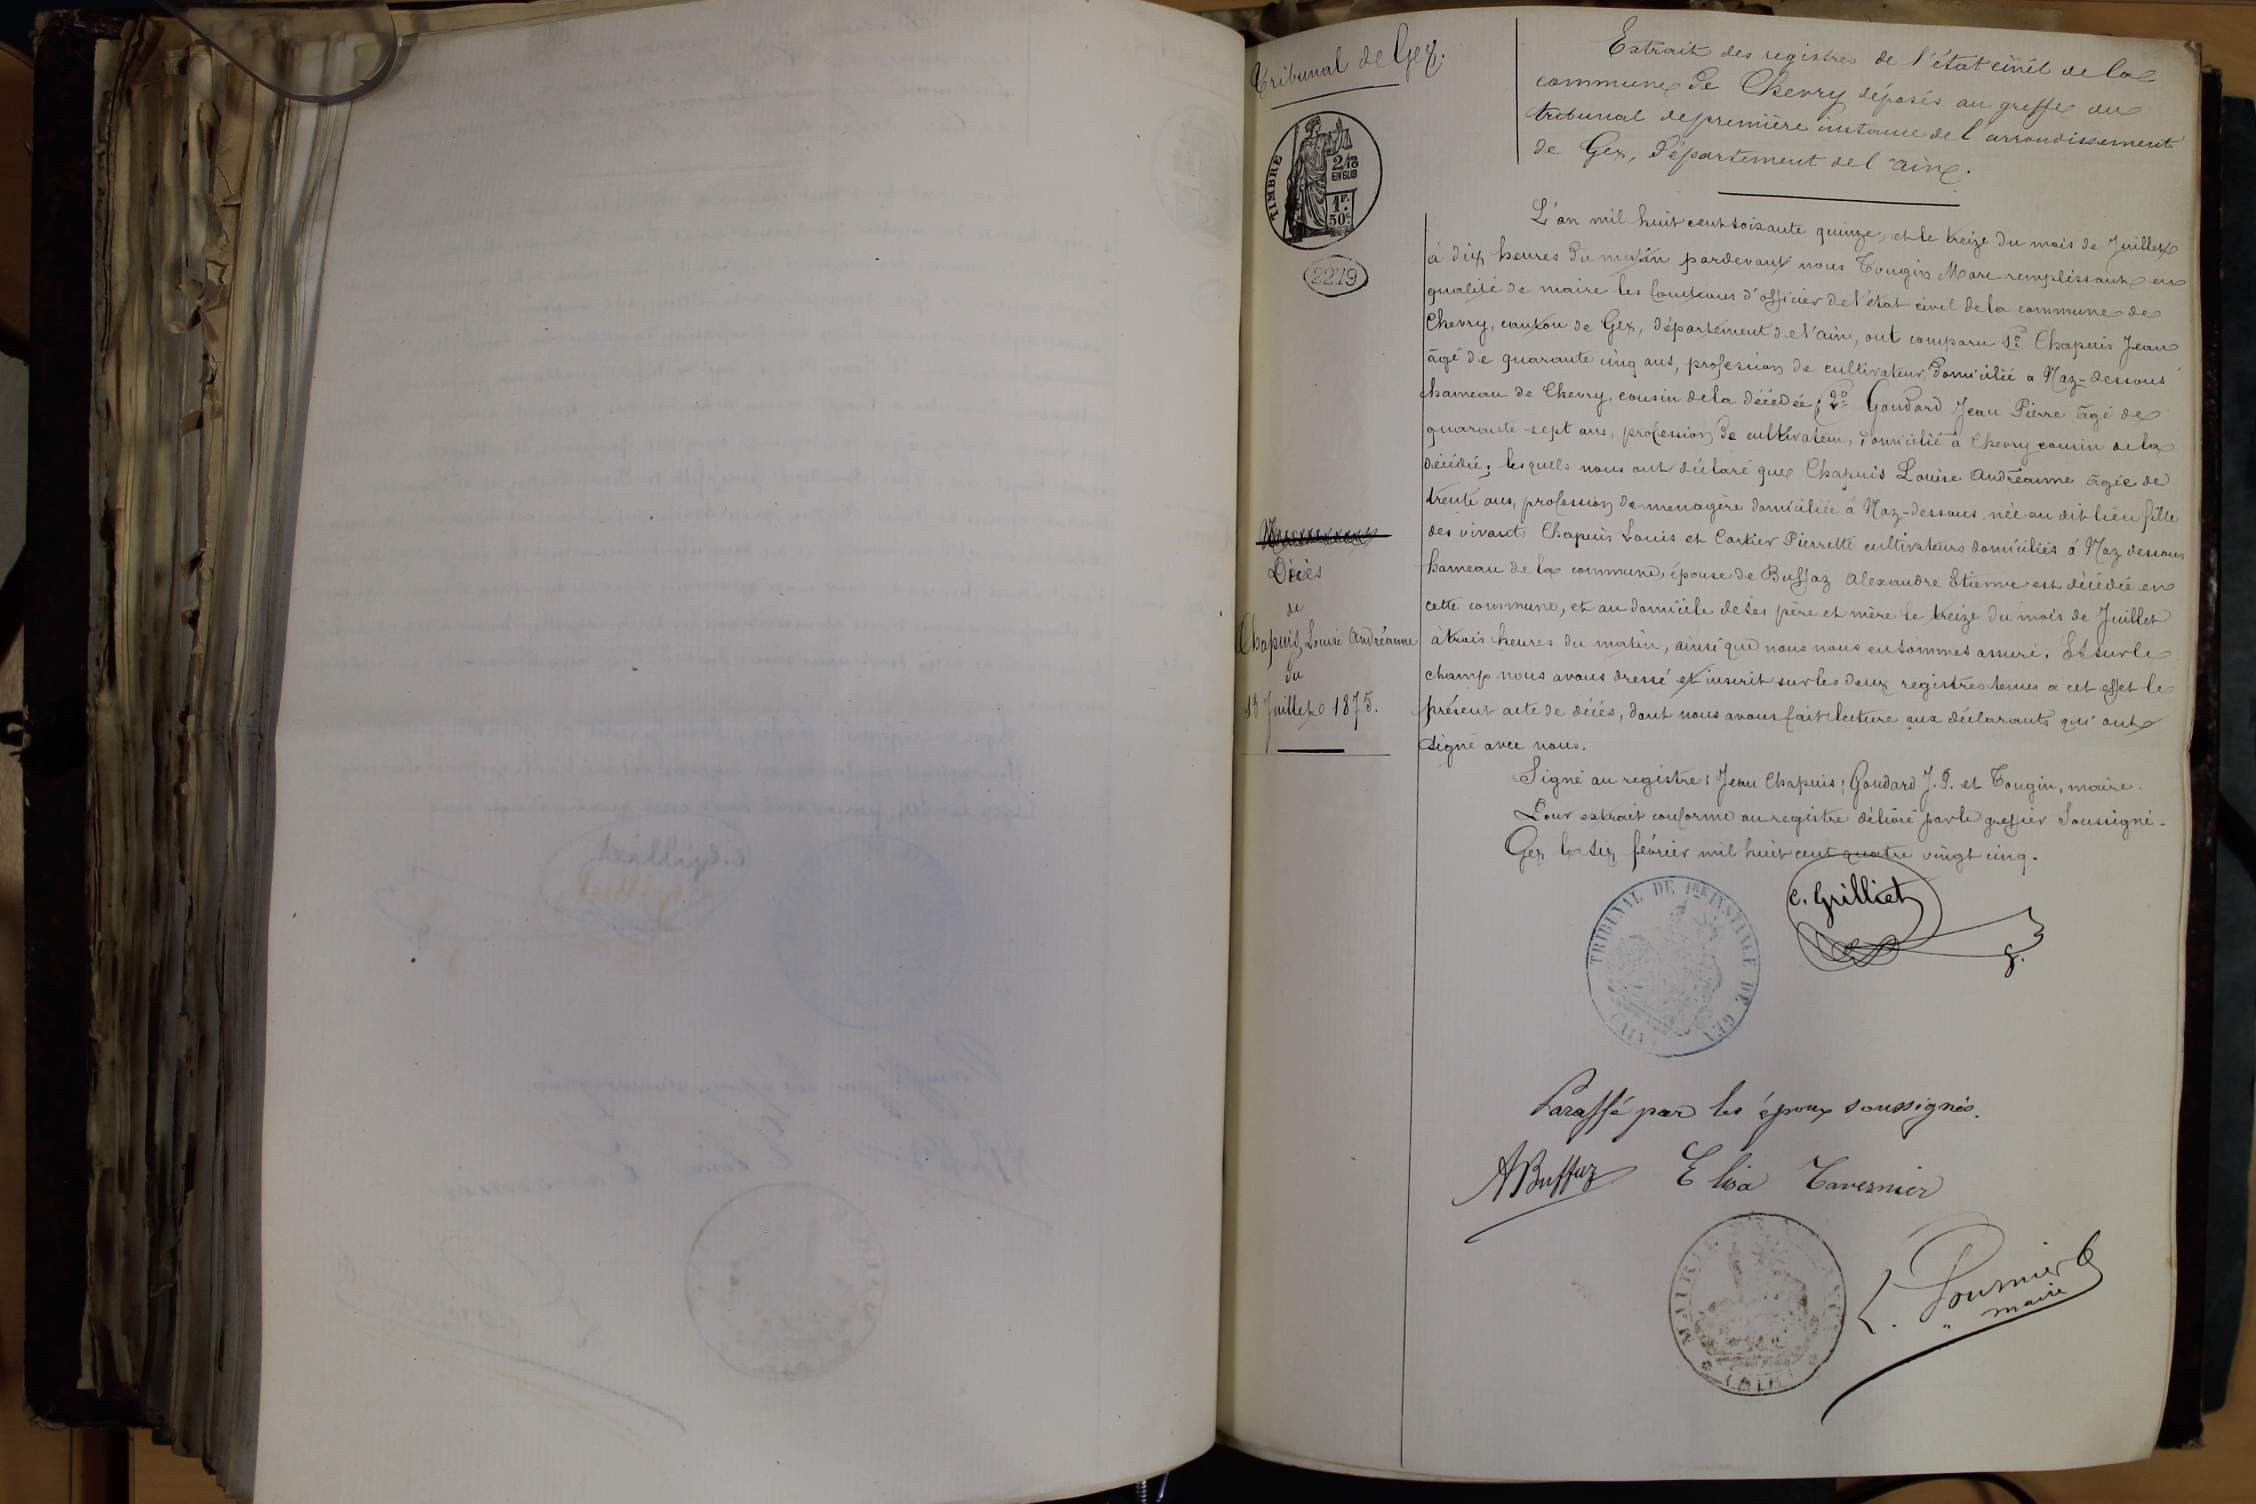 Tribunal de Gex.
TIMBRE
2/10
EN SUS
1F.
50c.
2279
Décès
de
Chapuis, Louise Andréanne
du
13 Juillet 1875.
Extrait des registres de l'état civil de la
commune de Chevry déposés au greffe du
tribunal de première instance de l'arrondissement
de Gex, Département de l'ain.
L'an mil huit cent soixante quinze, et le treize du mois de Juillet
à dix heures du matin pardevant nous Tougin Marc remplissant en
qualité de maire les fonctions d'officier de l'état civil de la commune de
Chevry, canton de Gex, département de l'ain, ont comparu 1o Chapuis Jean
âgé de quarante cinq ans, profession de cultivateur, domicilié a Naz-dessous
hameau de Chevry, cousin de la décédée, 2o Goudard Jean Pierre âgé de
quarante-sept ans, profession de cultivateur, domicilié à Chevry cousin de la
décédée; lesquels nous ont déclaré que Chapuis Louise Andréanne âgée de
trente ans, profession de menagère domiciliée à Naz-dessous, née au dit lieu fille
des vivants Chapuis Louis et Carrier Pierrette cultivateurs domiciliés á Naz dessous
hameau de la commune, épouse de Buffaz Alexandre Etienne est décédée en
cette commune, et au domicile de ses père et mère le treize du mois de Juillet
à trois heures du matin, ainsi que nous nous en sommes assuré. Et sur le
champ nous avons dressé et inscrit sur les deux registres tenus a cet effet le
présent acte de décés, dont nous avons fait lecture aux déclarants qui ont
signé avec nous.
Signé au registre: Jean Chapuis; Goudard J. P. et Tougin, maire.
Pour extrait conforme au registre délivré par le greffier soussigné.
Gex le six février mil huit cent quatre vingt cinq.
C. Grilliet
TRIBUNAL DE 1RE INSTANCE DE GEX
(AIN)
Paraffé par les époux soussignés.
ABuffaz Elisa Tavernier
MAIRIE
(AIN)
L. Fournier
maire